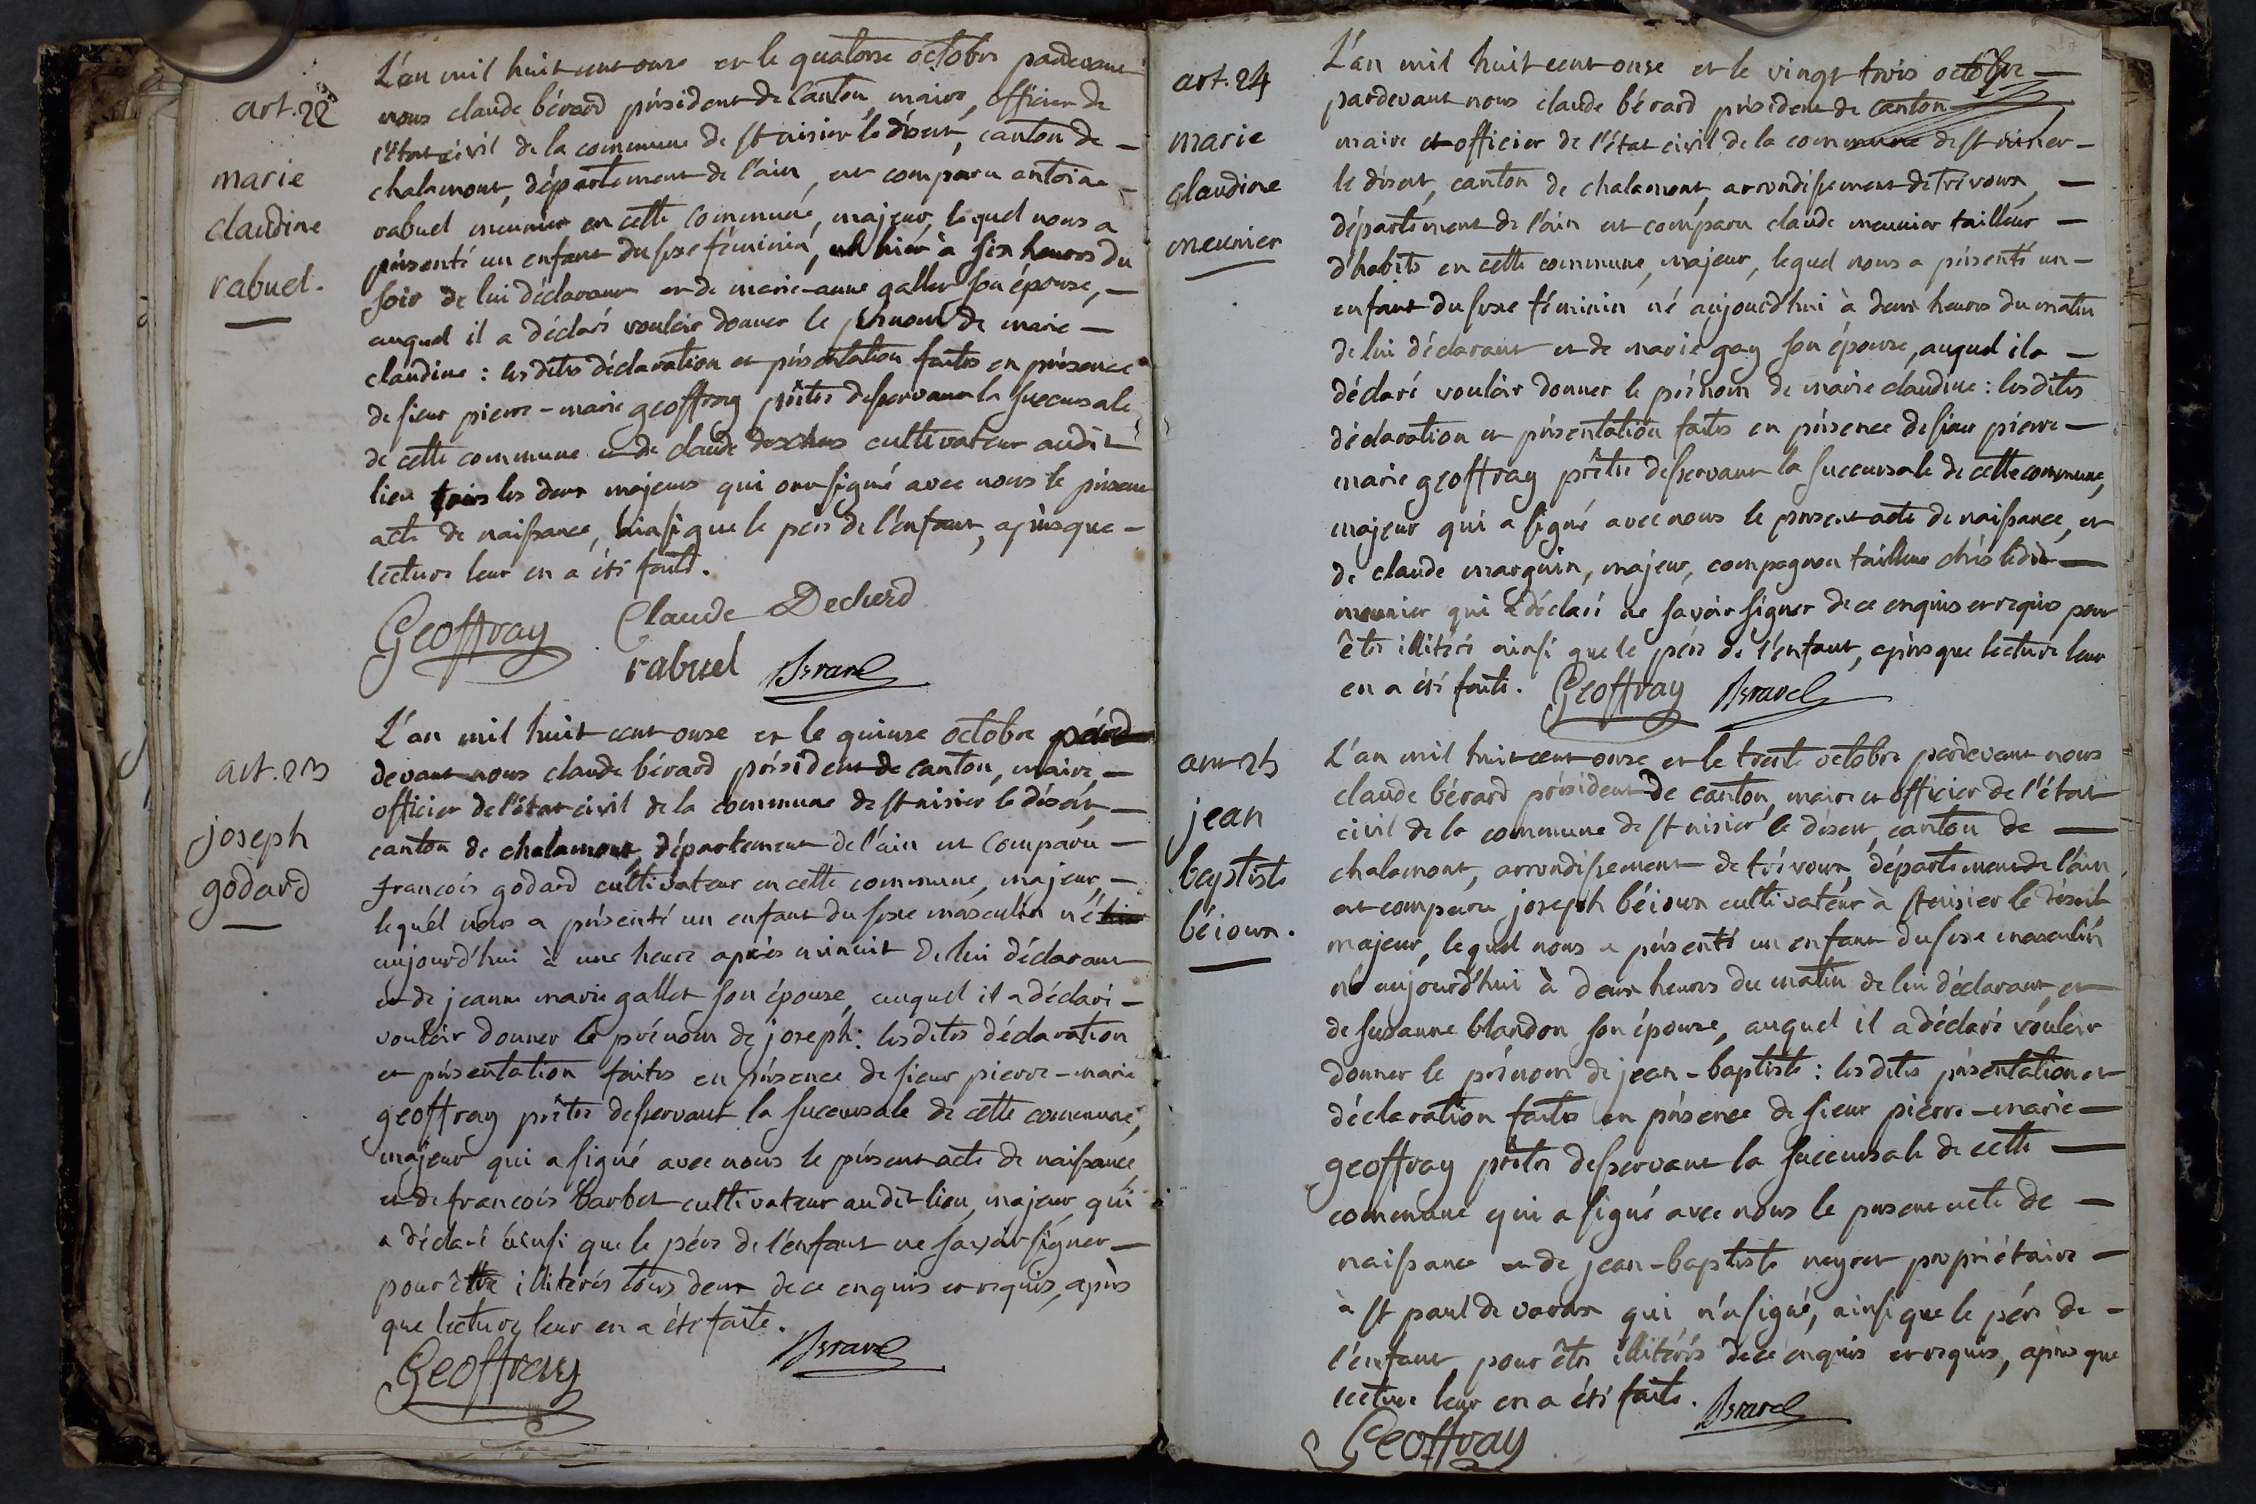 art. 22
marie
claudine
rabuel.
L'an mil huit cent onze et le quatorze octobre pardevant
nous claude bérard président de canton, maire, officier de
l'état civil de la commune de st nisier le désert, canton de —
chalamont, département de l'ain, est comparu antoine —
rabuel meunier en cette commune, majeur, lequel nous a
présenté un enfant du sexe féminin, né hier à six heures du
soir de lui déclarant et de marie-anne gallet son épouse, —
auquel il a déclaré vouloir donner le prénom de marie —
claudine : lesdites déclaration et présentation faites en présence
de sieur pierre-marie geoffray prêtre desservant la succursale
de cette commune et de claude cultivateur audit
lieu tous les deux majeurs qui ont signé avec nous le présent
acte de naissance, ainsi que le père de l'enfant, après que —
lecture leur en a été faite.
Geoffray Claude Decherd
rabuel Berard
art. 23
joseph
godard
L'an mil huit cent onze et le quinze octobre par
devant nous claude bérard président de canton, maire, —
officier de l'état civil de la commune de st nisier le désert, —
canton de chalamont, département de l'ain est comparu —
francois godard cultivateur en cette commune, majeur, —
lequel nous a présenté un enfant du sexe masculin né hier
aujourd'hui à une heure après minuit de lui déclarant
et de jeanne marie gallet son épouse, auquel il a déclaré —
vouloir donner le prénom de joseph : lesdites déclaration
et présentation faites en présence de sieur pierre-marie
geoffray prêtre desservant la succursale de cette commune,
majeur qui a signé avec nous le présent acte de naissance,
et de francois barbet cultivateur audit lieu, majeur, qui
a déclaré ainsi que le père de l'enfant ne savoir signer —
pour être illitérés tous deux de ce enquis et requis, après
que lecture leur en a été faite.
Geoffray Berard
art. 24
marie
claudine
meunier
L'an mil huit cent onze et le vingt trois octobre —
pardevant nous claude bérard président de canton —
maire et officier de l'état civil de la commune de st nisier —
le désert, canton de chalamont, arrondissement de trévoux, —
département de l'ain est comparu claude meunier tailleur —
d'habits en cette commune, majeur, lequel nous a présenté un —
enfant du sexe féminin né aujourd'hui à deux heures du matin
de lui déclarant et de marie gay son épouse, auquel il a —
déclaré vouloir donner le prénom de marie claudine : lesdites
déclaration et présentation faites en présence de sieur pierre —
marie geoffray prêtre desservant la succursale de cette commune,
majeur qui a signé avec nous le présent acte de naissance, et
de claude marguin, majeur, compagnon tailleur chés ledit —
meunier qui a déclaré ne savoir signer de ce enquis et requis pour
être illitéré ainsi que le père de l'enfant, après que lecture leur
en a été faite. Geoffray Berard
art 25
jean
baptiste
béioux.
L'an mil huit cent onze et le trente octobre pardevant nous
claude bérard président de canton, maire et officier de l'état
civil de la commune de st nisier le désert, canton de —
chalamont, arrondissement de trévoux, département de l'ain
est comparu joseph béioux cultivateur à st nisier le désert
majeur, lequel nous a présenté un enfant du sexe masculin
né aujourd'hui à deux heures du matin de lui déclarant, et
de susanne blandon son épouse, auquel il a déclaré vouloir
donner le prénom de jean-baptiste : lesdites présentation et
déclaration faites en présence de sieur pierre-marie —
geoffray prêtre desservant la succursale de cette —
commune qui a signé avec nous le présent acte de —
naissance et de jean-baptiste neyret propriétaire —
à st paul de varax qui n'a signé, ainsi que le père de —
l'enfant pour être illitérés de ce enquis et requis, après que
lecture leur en a été faite. Berard
Geoffray